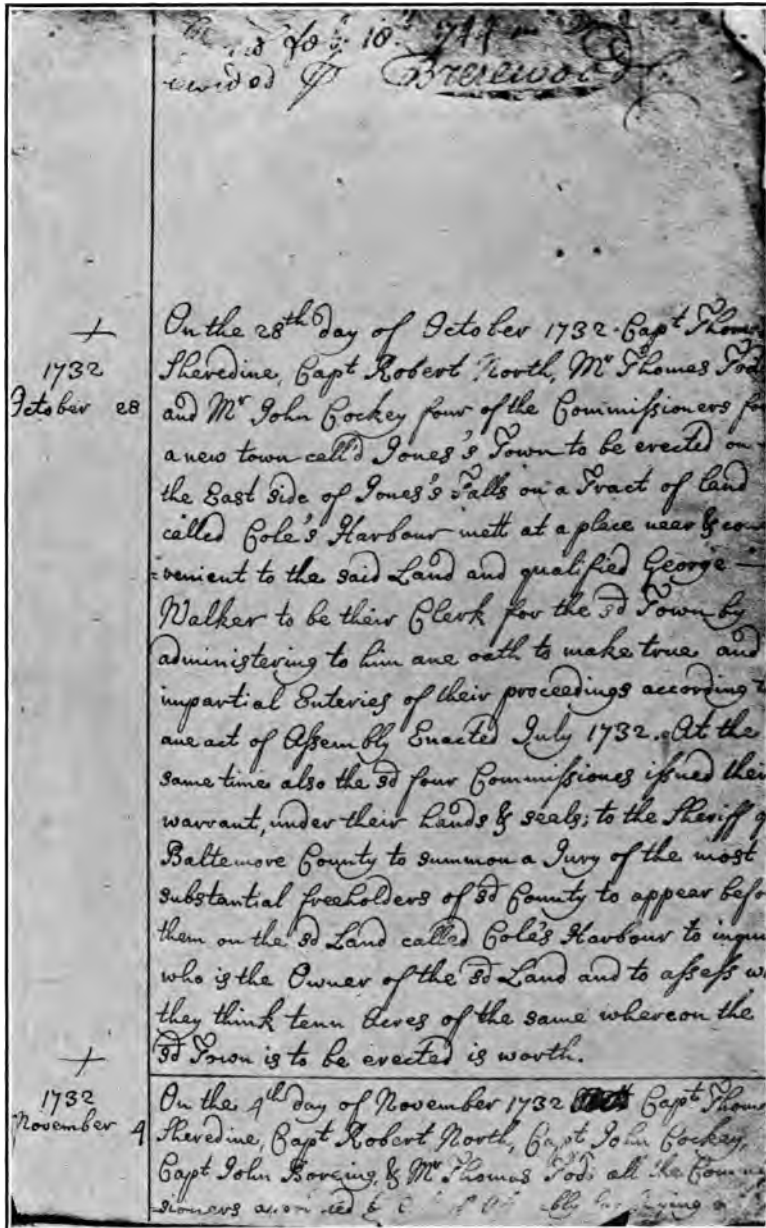 18 744
Brerewood
1732
October 28
On the 28th day of October 1732. Capt Thom
Sheredine, Capt Robert North, Mr Thomas Tod
and Mr John Cockey four of the Commissioners fo
a new town call'd Jones's Town to be erected on
the East side of Jones's Falls on a Tract of land
called Cole's Harbour mett at a place near & con
=venient to the said Land and qualified George
Walker to be their Clerk for the sd Town by
administering to him ane oath to make true and
impartial Enteries of their proceedings according
ane act of Assembly Enacted July 1732. At the
same time also the sd four Commissiones issued their
warrant, under their hands & seals; to the Sheriff
Baltemore County to summon a Jury of the most
substantial freeholders of sd County to appear befo
them on the sd Land called Cole's Harbour to inqui
who is the Owner of the sd Land and to assess w
they think tenn Acres of the same whereon the
sd Town is to be erected is worth.
1732
November 4
On the 4th day of November 1732 Capt Thom
Sheredine, Capt Robert North, Capt John Cockey,
Capt John Boreing, & Mr Thomas Tod all the Comm
sioners